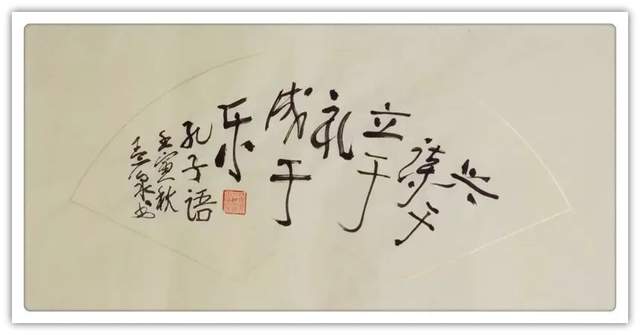 兴
诗于
立于
礼
成于
乐
孔子语
壬寅秋
泉书